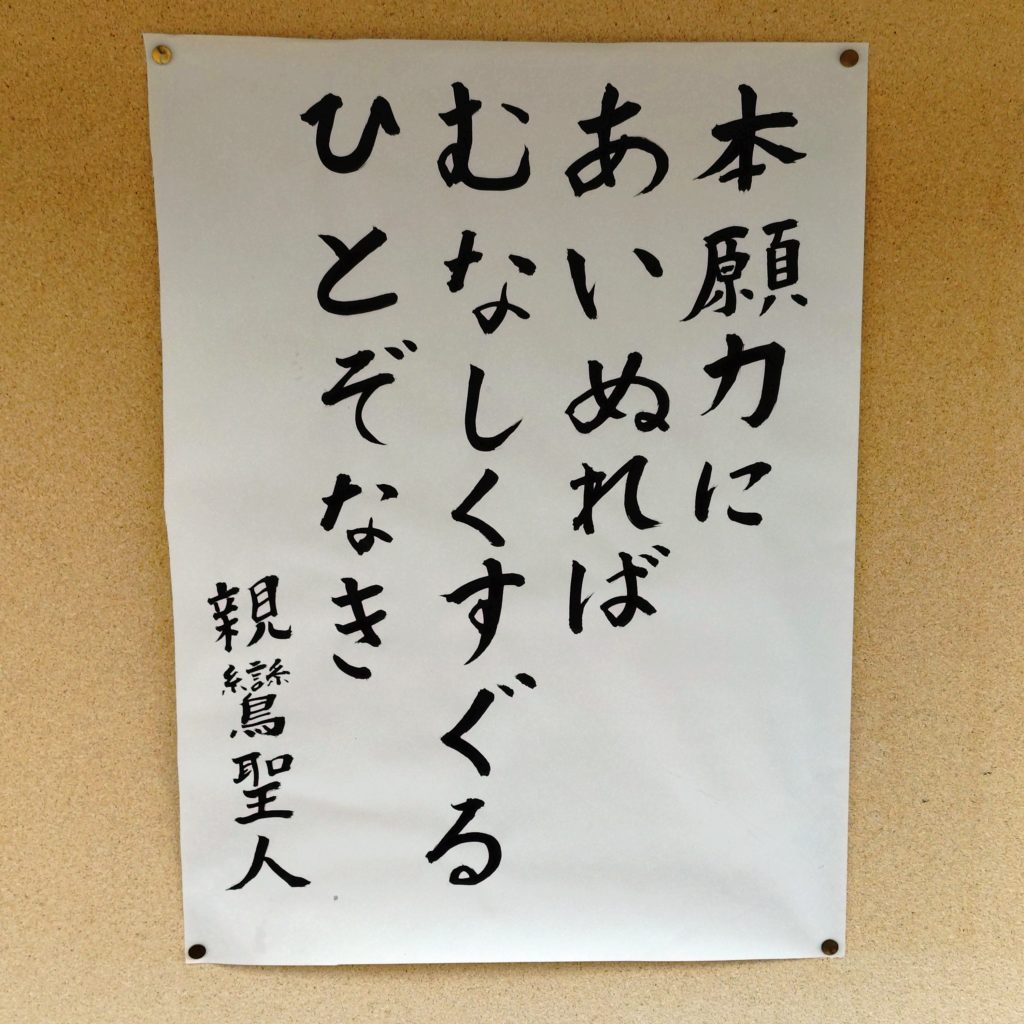 本願力に
あいぬれば
むなしくすぐる
ひとぞなき
親鸞聖人